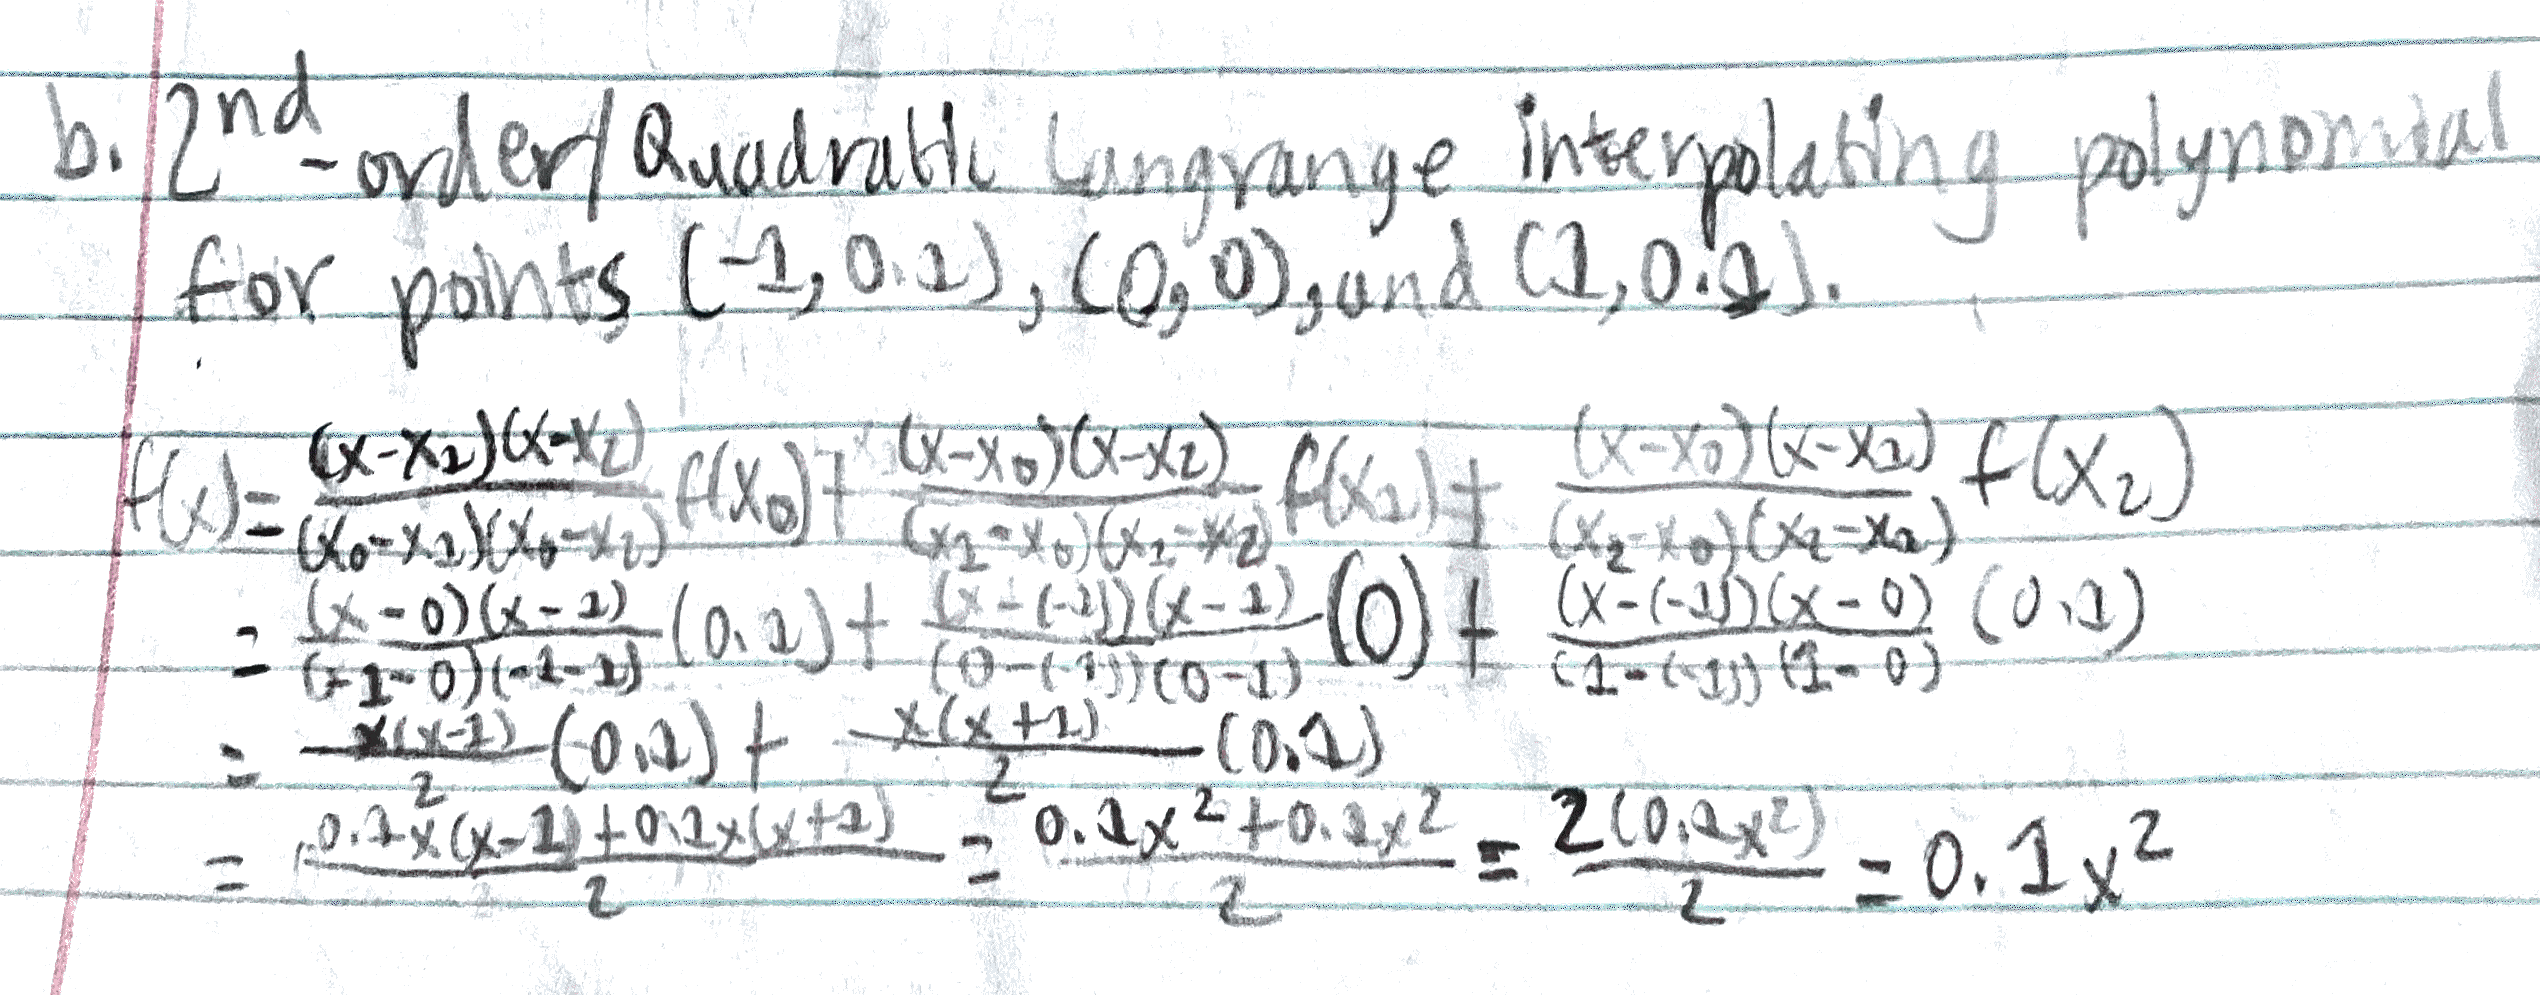 b. 2nd-order/Quadratic Langrange interpolating polynomial
for points (-1, 0.1), (0, 0), and (1, 0.1).
f(x) = (x-x₁)(x-x₂)/(x₀-x₁)(x₀-x₂) f(x₀) + (x-x₀)(x-x₂)/(x₁-x₀)(x₁-x₂) f(x₁) + (x-x₀)(x-x₁)/(x₂-x₀)(x₂-x₁) f(x₂)
= (x-0)(x-1)/(-1-0)(-1-1) (0.1) + (x-(-1))(x-1)/(0-(-1))(0-1) (0) + (x-(-1))(x-0)/(1-(-1))(1-0) (0.1)
= x(x-1)/2 (0.1) + x(x+1)/2 (0.1)
= 0.1x(x-1)+0.1x(x+1)/2 = 0.1x²+0.1x²/2 = 2(0.1x²)/2 = 0.1x²